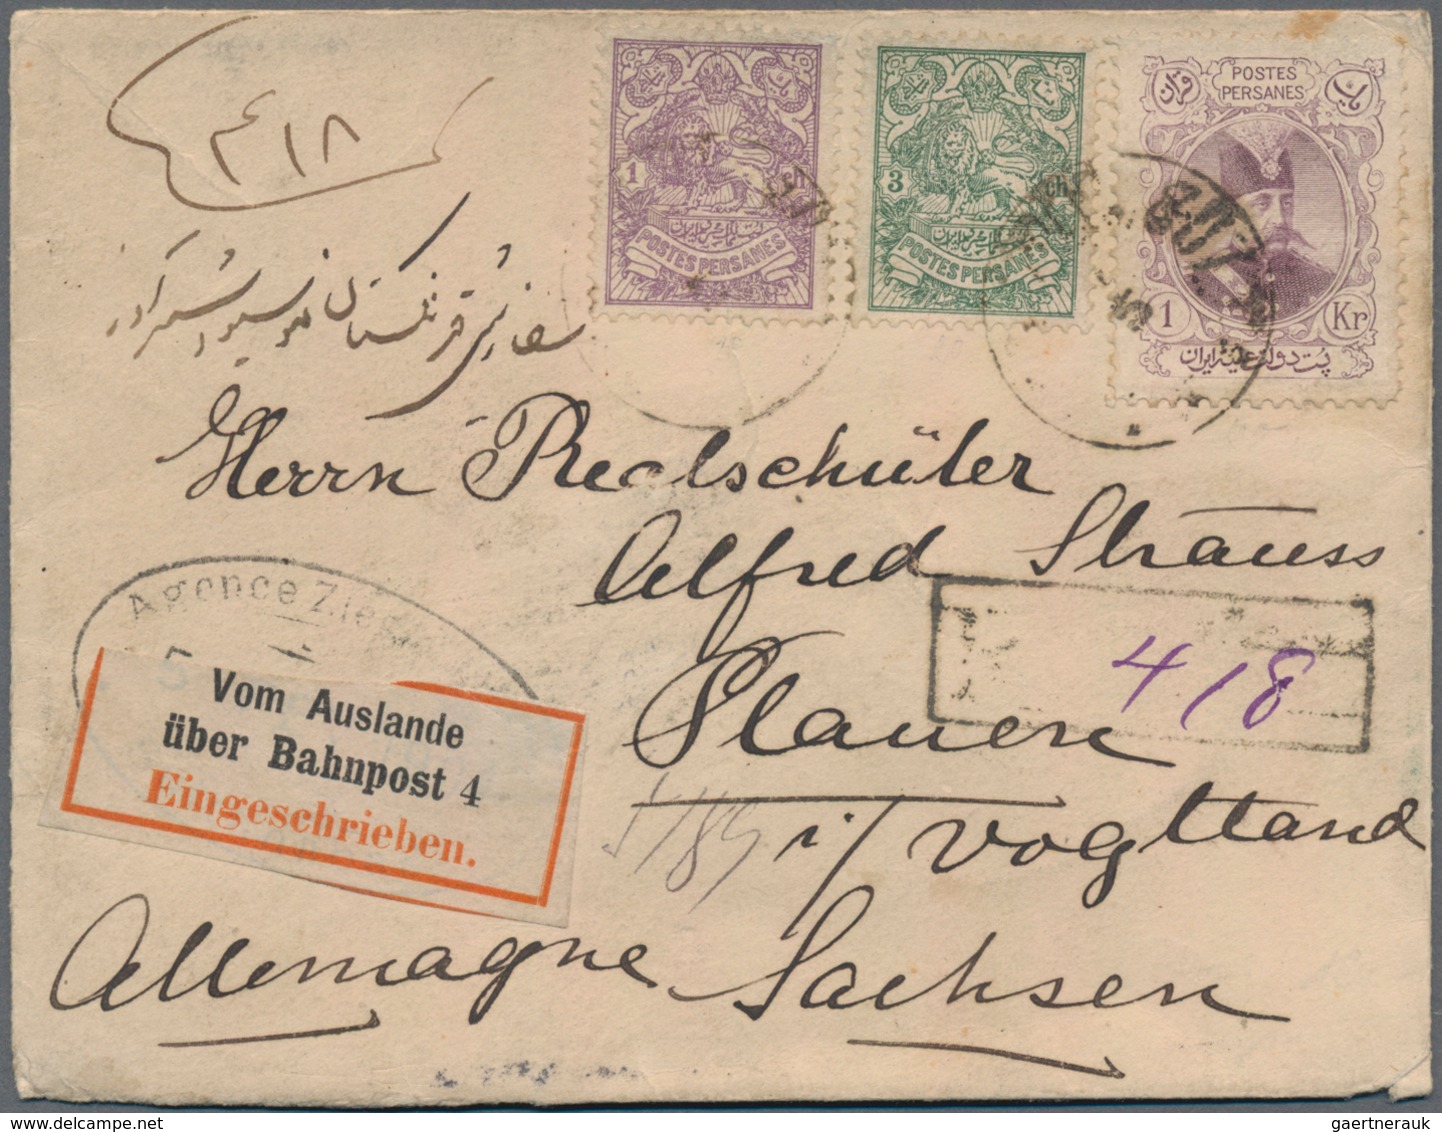 ۴۱۸
1 ch
POSTES PERSANES
3 ch
POSTES PERSANES
POSTES
PERSANES
قران
1 Kr
پست دولت علیه ایران
سفارشی فرنگستان
Herrn Realschüler
Alfred Strauss
Plauen
i/ Vogtland
Allemagne Sachsen
Agence Zieg
Vom Auslande
über Bahnpost 4
Eingeschrieben.
418
gaertnerauk @ delcampe.net